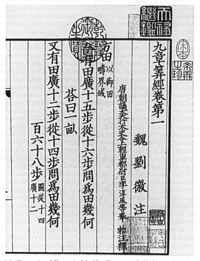 九章筭經卷第一
魏劉徽注
唐朝議大夫行太史令上輕車都尉臣李淳風等奉敕注釋
方田以御田疇界域
今有田廣十五步從十六步問為田幾何
荅曰一畝
又有田廣十二步從十四步問為田幾何
百六十八步圖從十四廣十二